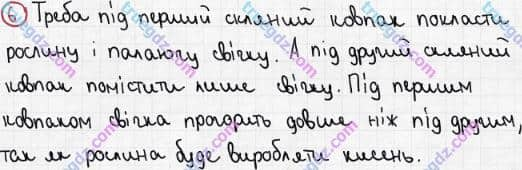 ⑥ Треба під перший скляний ковпак покласти
рослину і палаючу свічку. А під другий скляний
ковпак помістити лише свічку. Під першим
ковпаком свічка прогорить довше ніж під другим,
так як рослина буде виробляти кисень.